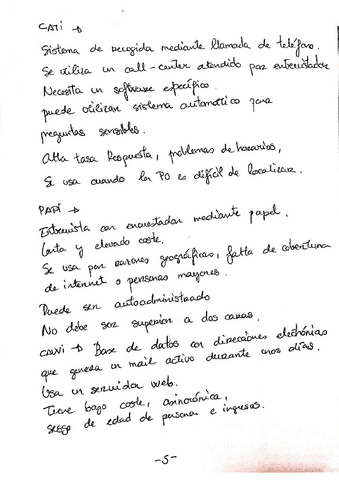 CATI →
Sistema de recogida mediante llamada de teléfono.
Se utiliza un call-center atendido por entrevistador
Necesita un software específico.
puede utilizar sistema automático para
preguntas sensibles.
Alta tasa Respuesta, problemas de horarios,
Se usa cuando la PO es difícil de localizar.
PAPI →
Entrevista con encuestador mediante papel.
lenta y elevado coste.
Se usa por razones geográficas, falta de cobertura
de internet o personas mayores.
Puede ser autoadministrado
No debe ser superior a dos caras.
CAWI → Base de datos con direcciones electrónicas
que genera un mail activo durante unos días.
Usa un servidor web.
Tiene bajo coste, asincrónica,
sesgo de edad de persona e ingresos.
-5-